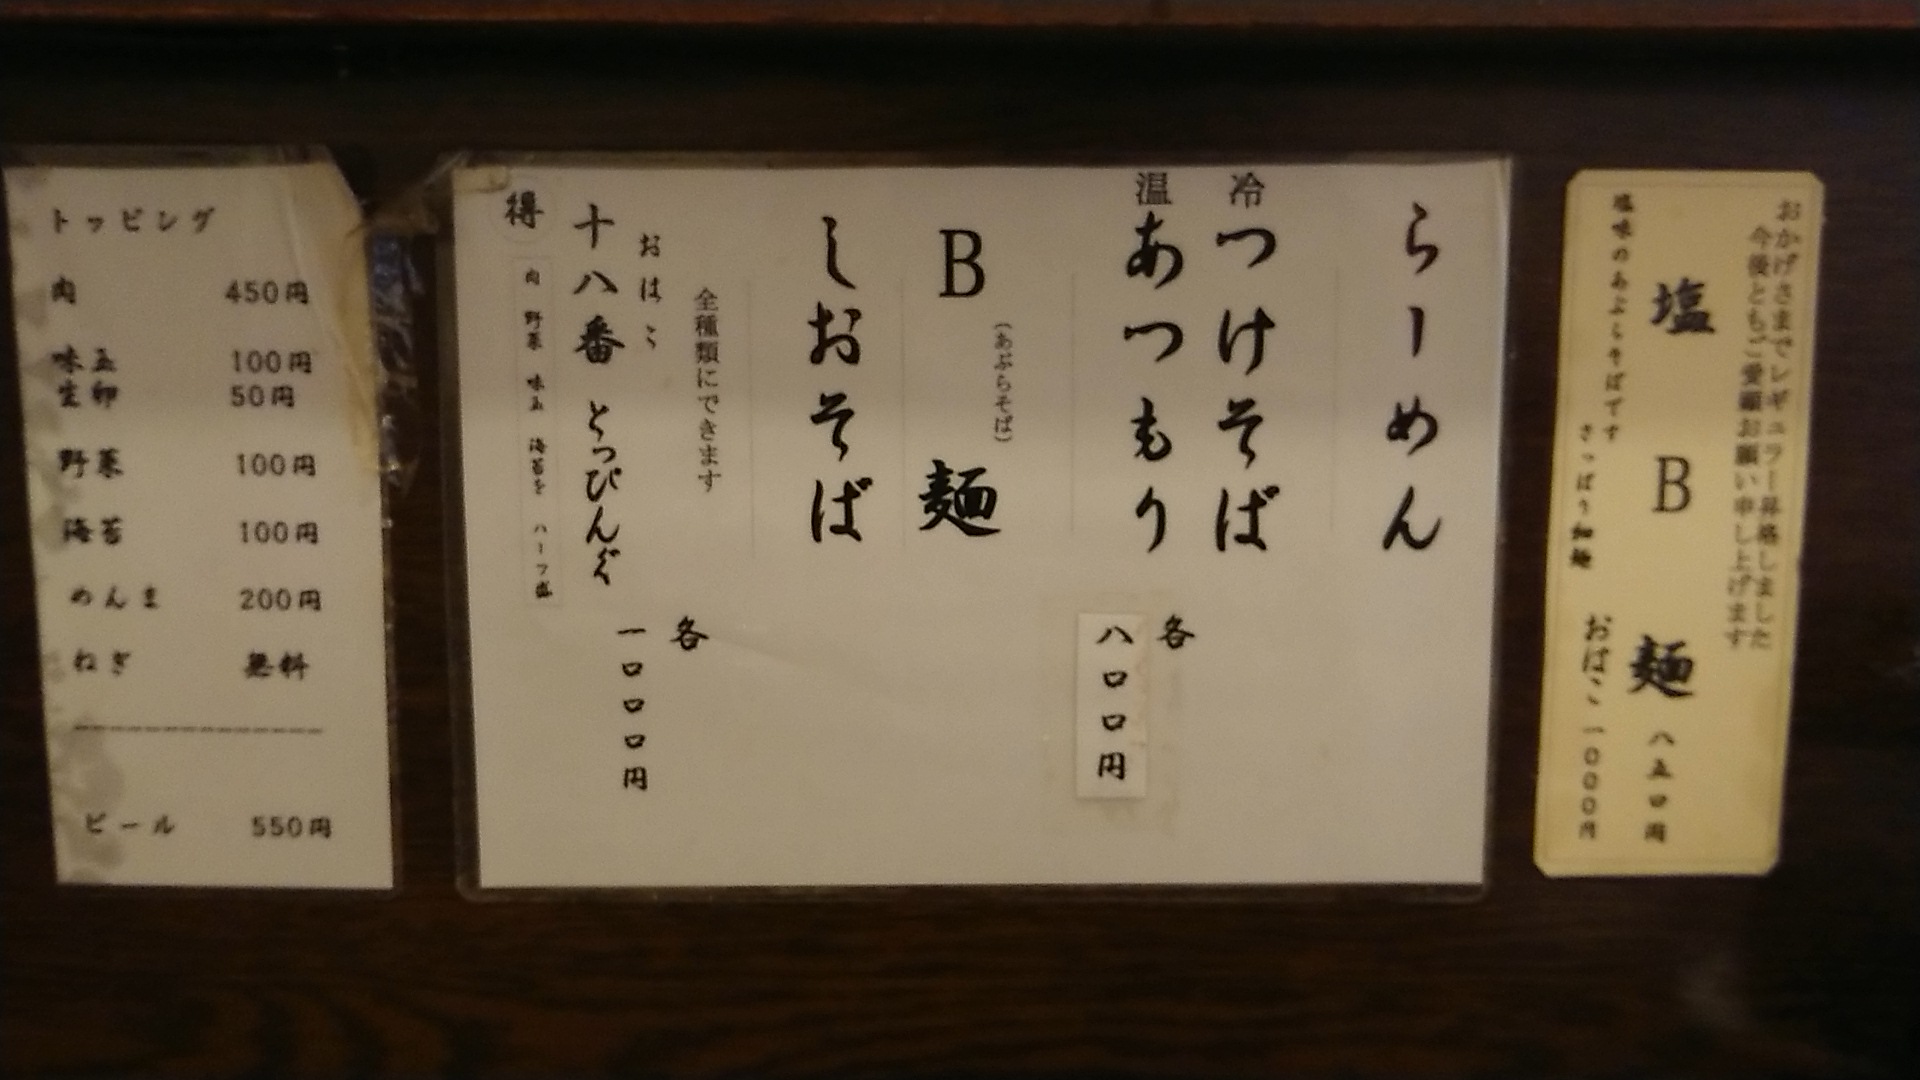 おかげさまでレギュラー昇格しました
今後ともご愛顧お願い申し上げます
塩B麺 八五〇円
塩味のあぶらそばです
さっぱり細麺
おはこ 一〇〇〇円
らーめん
冷 つけそば
温 あつもり
各
八〇〇円
(あぶらそば)
B麺
しおそば
全種類にできます
各
一〇〇〇円
おはこ
十八番 とっぴんぐ
得 肉 野菜 味玉 海苔を ハーフ盛
トッピング
肉 450円
味玉 100円
生卵 50円
野菜 100円
海苔 100円
めんま 200円
ねぎ 無料
ビール 550円